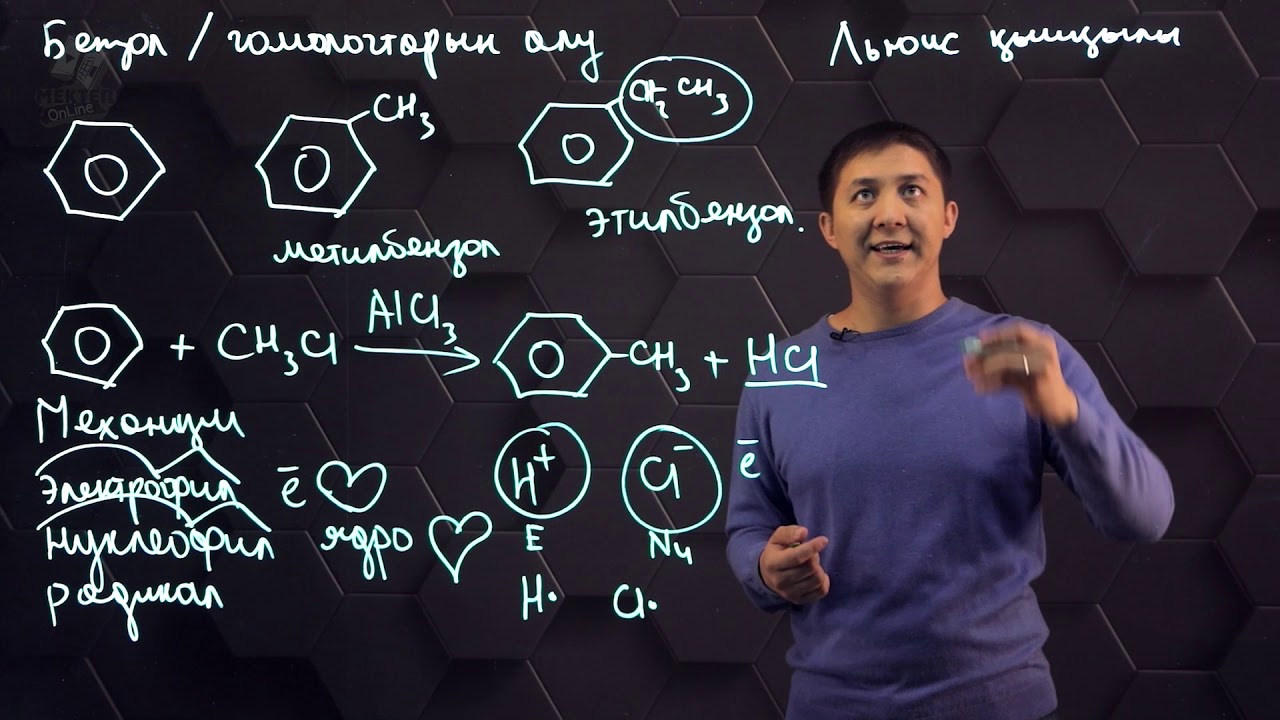 Бензол / гомологтарын алу
Льюис қышқылы
MEKTEP
OnLine
CH₃
CH₂ CH₃
метилбензол
этилбензол.
+ CH₃Cl AlCl₃ → CH₃ + HCl
Механизм
Электрофил ē
Нуклеофил ядро
радикал
H⁺ Cl⁻ ē
E Nu
H· Cl·